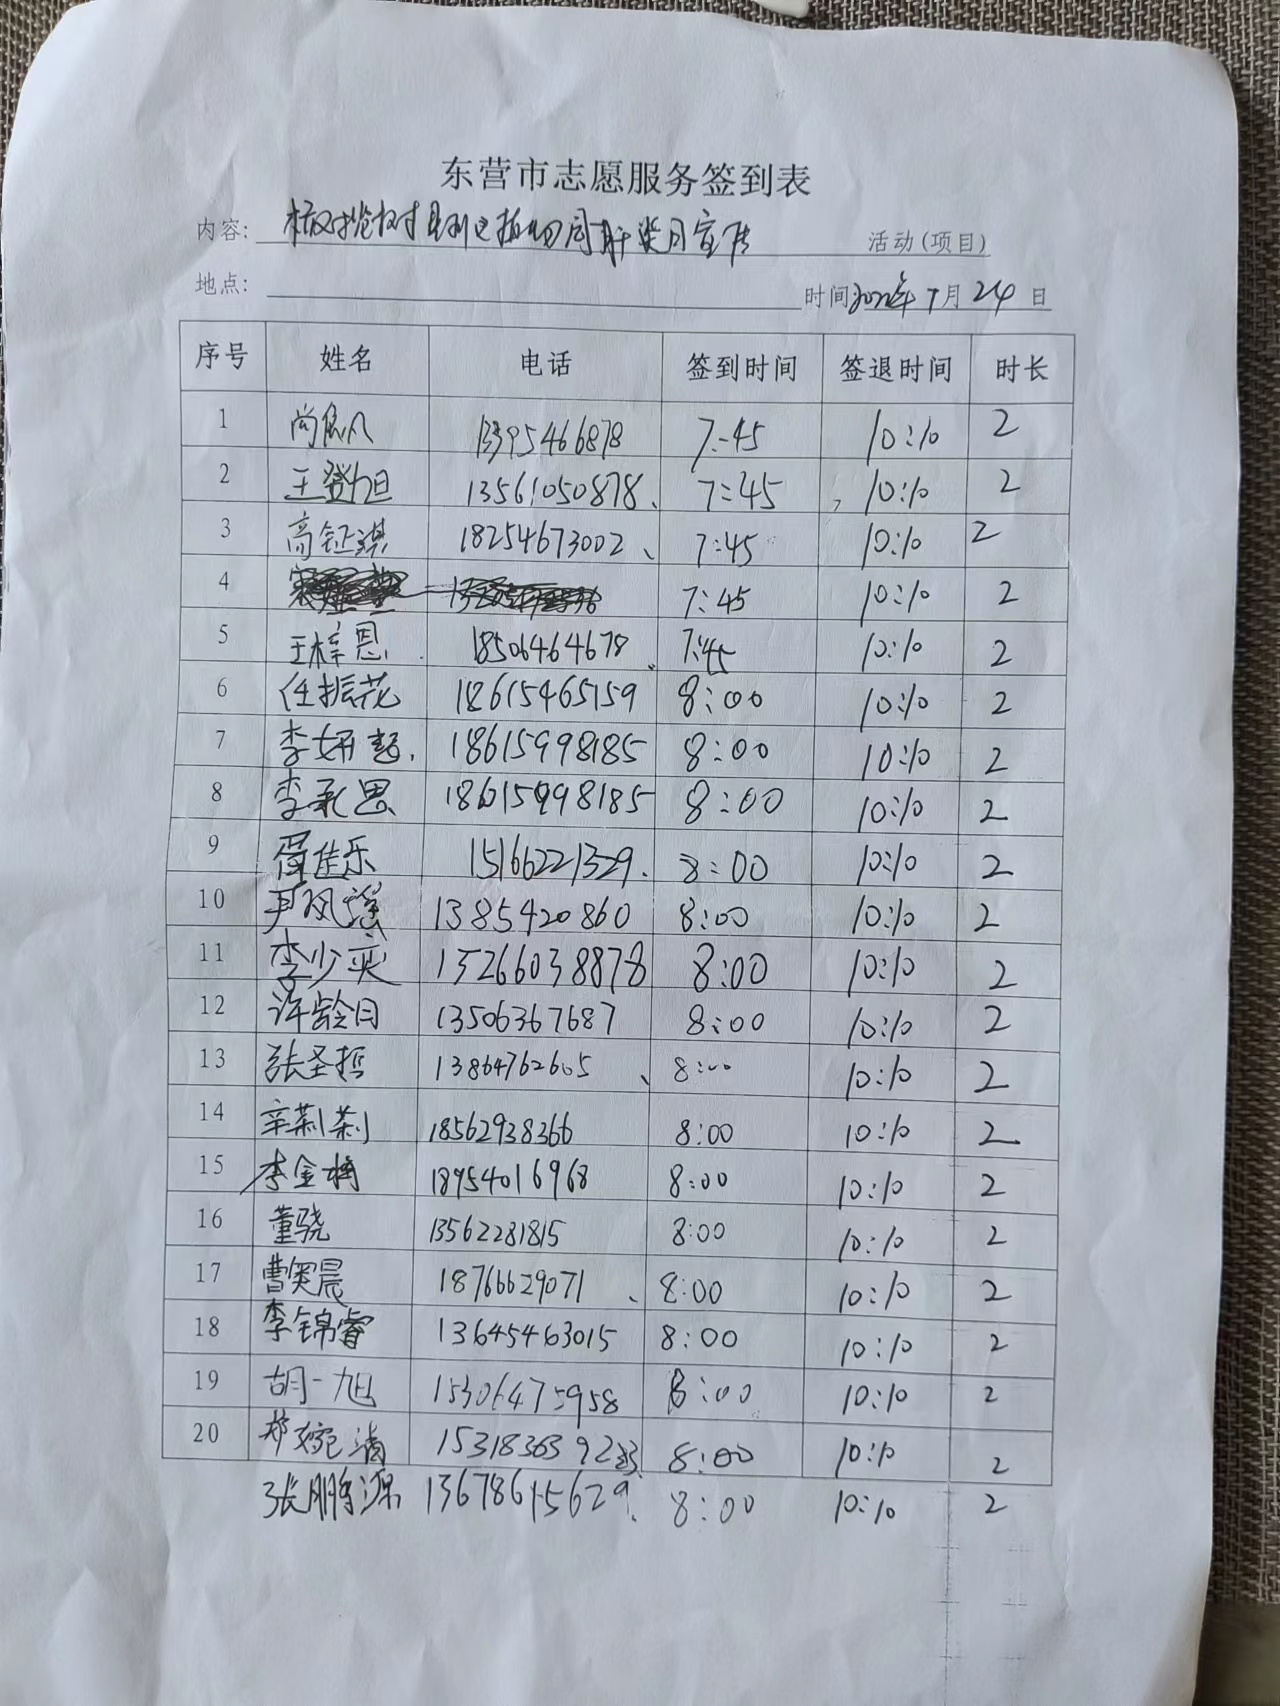 东营市志愿服务签到表
内容: 活动(项目)
地点: 时间2022年7月24日
序号 姓名 电话 签到时间 签退时间 时长
1 尚 13395466878 7:45 10:10 2
2 王登旭 13561050878 7:45 10:10 2
3 高钲淇 18254673002 7:45 10:10 2
4 7:45 10:10 2
5 王梓恩 18506464678 7:45 10:10 2
6 任振花 18615465159 8:00 10:10 2
7 李妍 18615998185 8:00 10:10 2
8 李承恩 18615998185 8:00 10:10 2
9 佳乐 15166221329 8:00 10:10 2
10 尹凤瑶 1385420860 8:00 10:10 2
11 李少奕 15266038878 8:00 10:10 2
12 许龄月 13506367687 8:00 10:10 2
13 张圣哲 13864762605 8:00 10:10 2
14 辛莉莉 18562938366 8:00 10:10 2
15 李金梅 18954016968 8:00 10:10 2
16 董骁 13562281815 8:00 10:10 2
17 曹奕晨 18766629071 8:00 10:10 2
18 李锦睿 13645463015 8:00 10:10 2
19 胡一旭 15306475958 8:00 10:10 2
20 郑婉清 8:00 10:10 2
张鹏源 13678615629 8:00 10:10 2